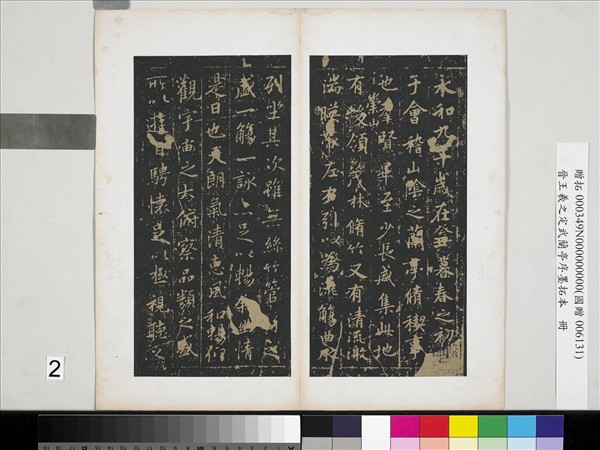 永和九年歲在癸丑暮春之初
于會稽山陰之蘭亭脩稧事
也羣賢畢至少長咸集此地
有崇山峻領茂林脩竹又有清流激
湍暎帶左右引以為流觴曲水
列坐其次雖無絲竹管
盛一觴一詠亦足以暢敘幽情
是日也天朗氣清惠風和暢仰
觀宇宙之大俯察品類之盛
所以遊目騁懷足以極視聽之
贈拓 000349N000000000(國贈 006131)
晉王羲之定武蘭亭序墨拓本 冊
2